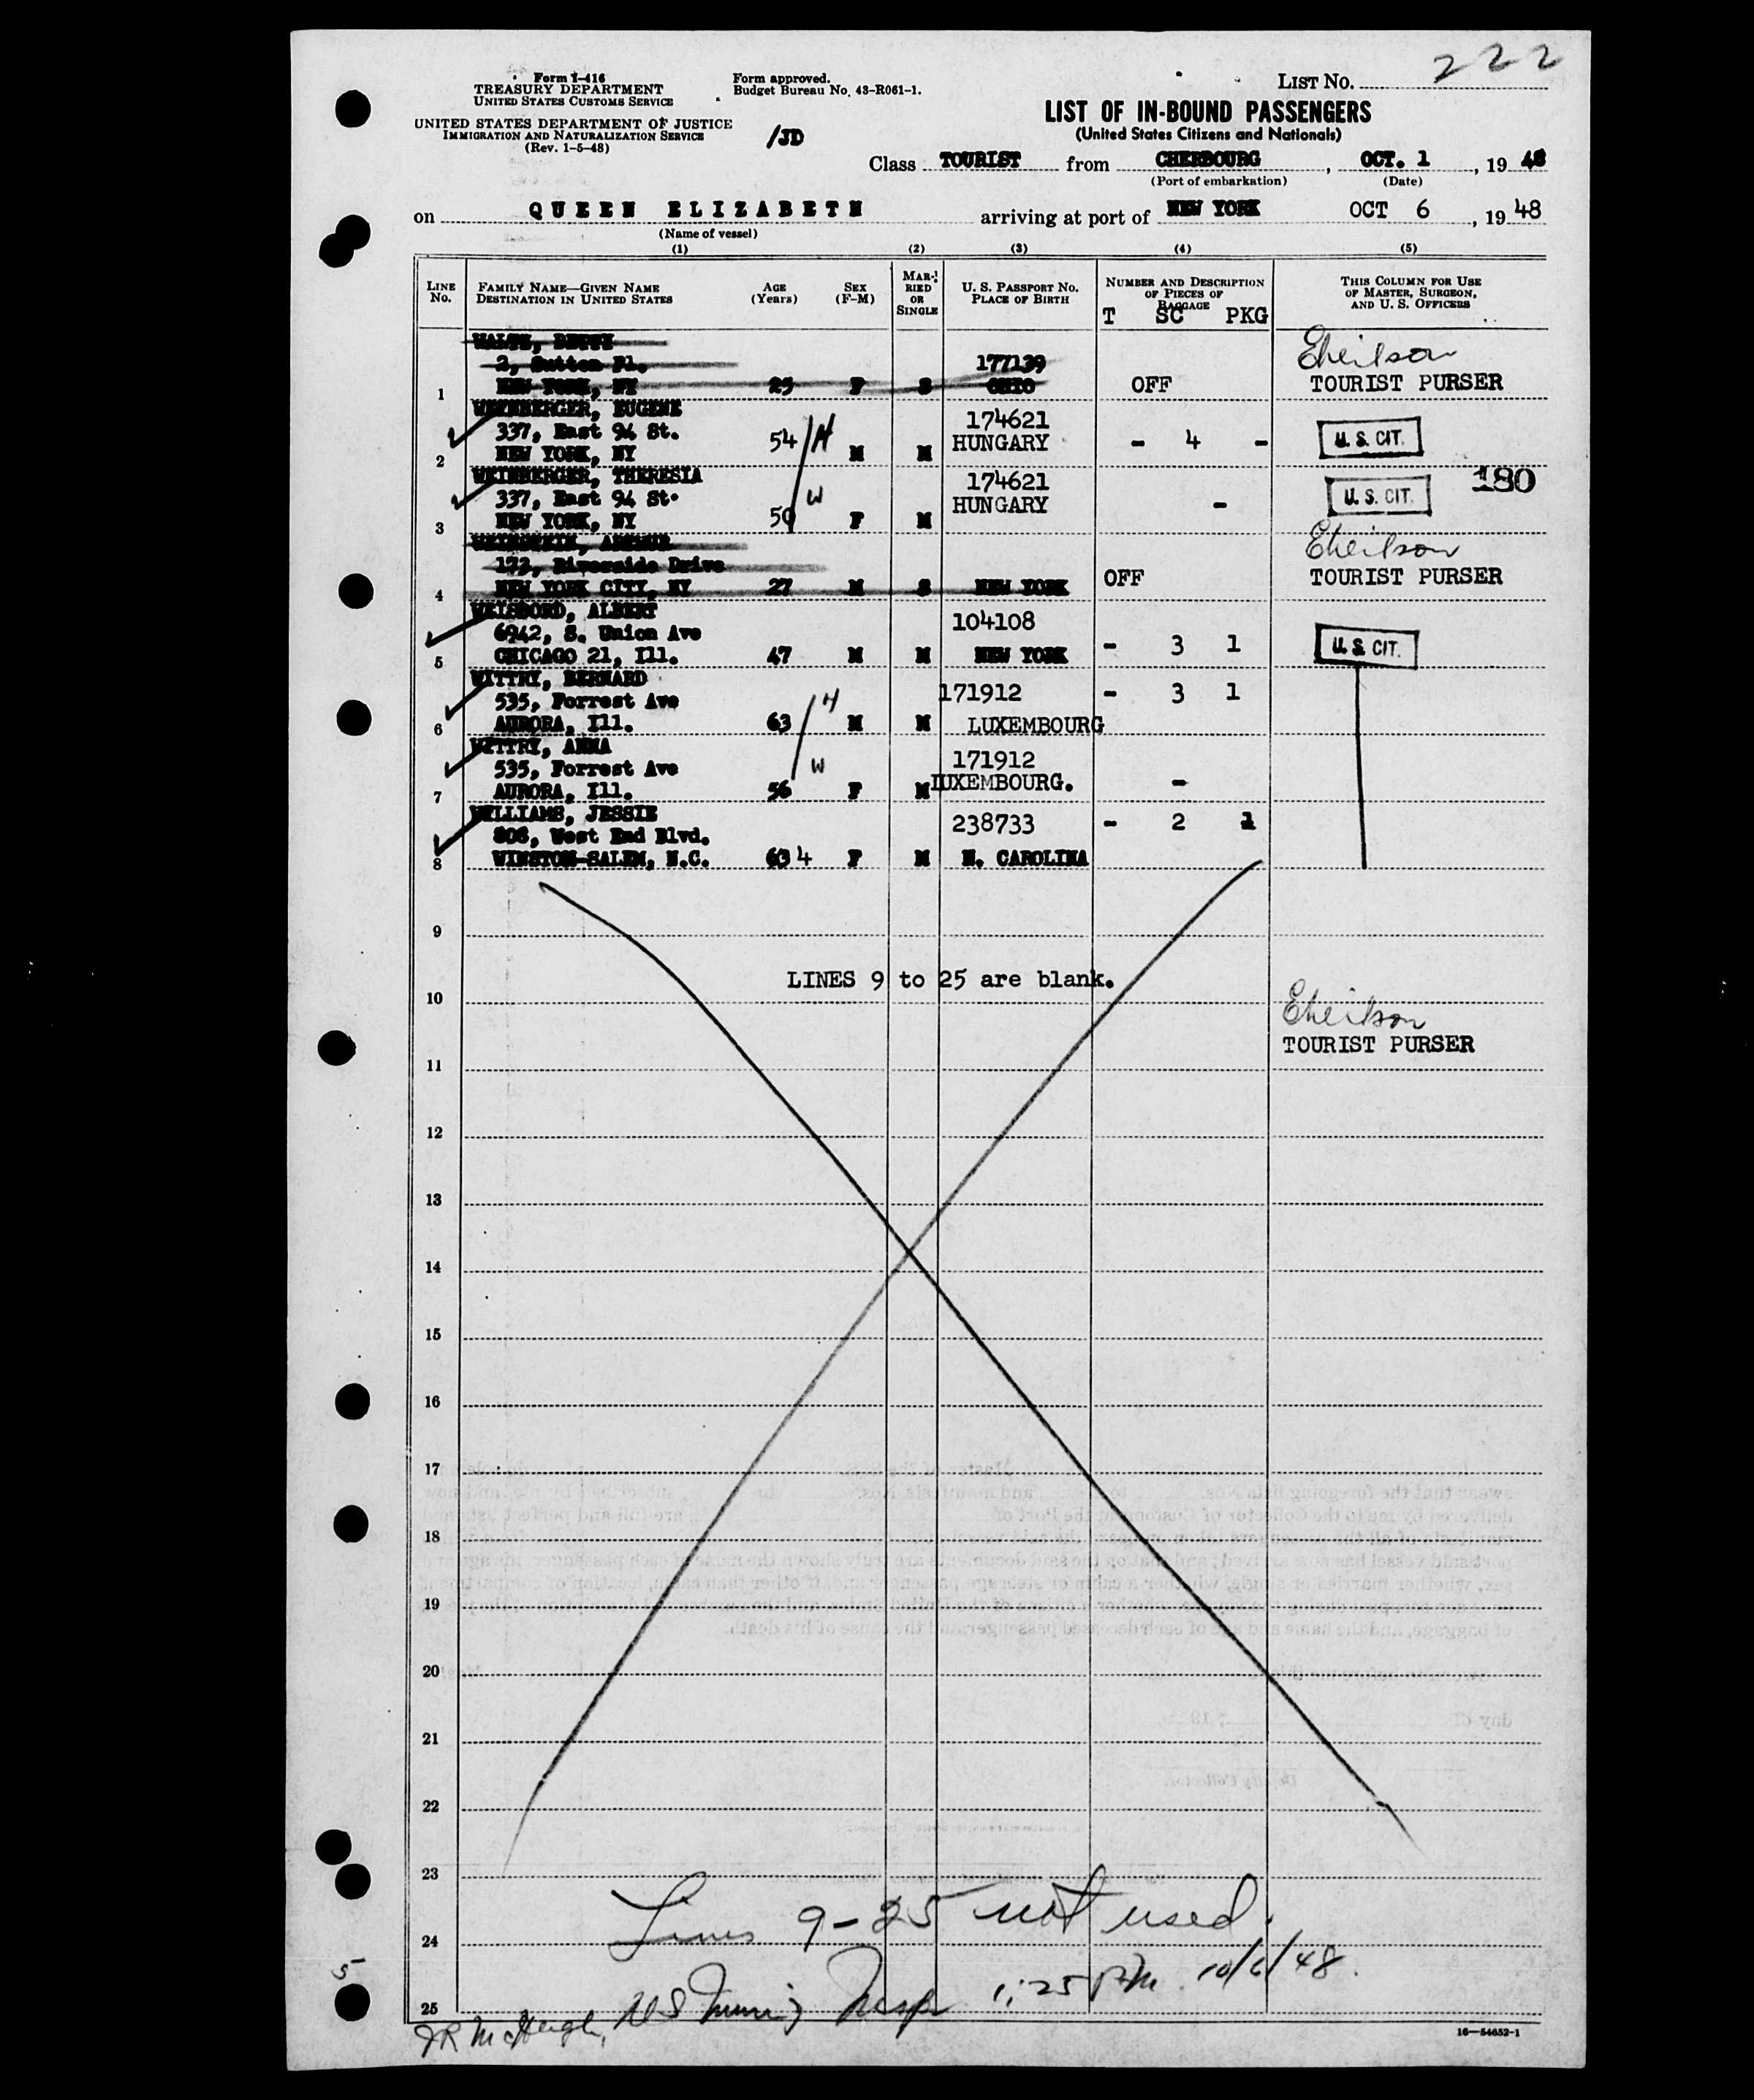 222
Form I-416
TREASURY DEPARTMENT
UNITED STATES CUSTOMS SERVICE
UNITED STATES DEPARTMENT OF JUSTICE
IMMIGRATION AND NATURALIZATION SERVICE
(Rev. 1-5-48)
Form approved.
Budget Bureau No. 43-R061-1.
/JD
LIST NO.
LIST OF IN-BOUND PASSENGERS
(United States Citizens and Nationals)
Class TOURIST from CHERBOURG, OCT. 1, 19 48
(Port of embarkation) (Date)
on QUEEN ELIZABETH arriving at port of NEW YORK OCT 6, 19 48
(Name of vessel)
(1) (2) (3) (4) (5)
LINE NO.
FAMILY NAME—GIVEN NAME
DESTINATION IN UNITED STATES
AGE (Years)
SEX (F-M)
MARRIED OR SINGLE
U. S. PASSPORT NO.
PLACE OF BIRTH
NUMBER AND DESCRIPTION OF PIECES OF BAGGAGE
T SC PKG
THIS COLUMN FOR USE OF MASTER, SURGEON, AND U. S. OFFICERS
WALTZ, BETTY
2, Sutton Pl. 177139
1 NEW YORK, NY 25 F S OHIO OFF TOURIST PURSER
WEINBERGER, EUGENE 174621
337, East 94 St. 54 /H HUNGARY - 4 - U. S. CIT.
2 NEW YORK, NY M M
WEINBERGER, THERESIA 174621 180
337, East 94 St. W HUNGARY - U. S. CIT.
3 NEW YORK, NY 50 F M
WEINSTEIN, ARTHUR
172, Riverside Drive
4 NEW YORK CITY, NY 27 M S NEW YORK OFF TOURIST PURSER
WEISBORD, ALBERT 104108
6942, S. Union Ave
5 CHICAGO 21, Ill. 47 M M NEW YORK - 3 1 U. S. CIT.
WITTRY, BERNARD
535, Forrest Ave H 171912 - 3 1
6 AURORA, Ill. 63 M M LUXEMBOURG
WITTRY, ANNA
535, Forrest Ave W 171912
7 AURORA, Ill. 56 F M LUXEMBOURG. -
WILLIAMS, JESSIE
808, West End Blvd. 238733 - 2 1
8 WINSTON-SALEM, N.C. 63 4 F M N. CAROLINA
9
LINES 9 to 25 are blank.
10
TOURIST PURSER
11
12
13
14
15
16
17
18
19
20
21
22
23
Lines 9-25 not used.
24
1:25 PM 10/6/48.
25
JR McHugh, US Immig Insp
5
16—54652-1